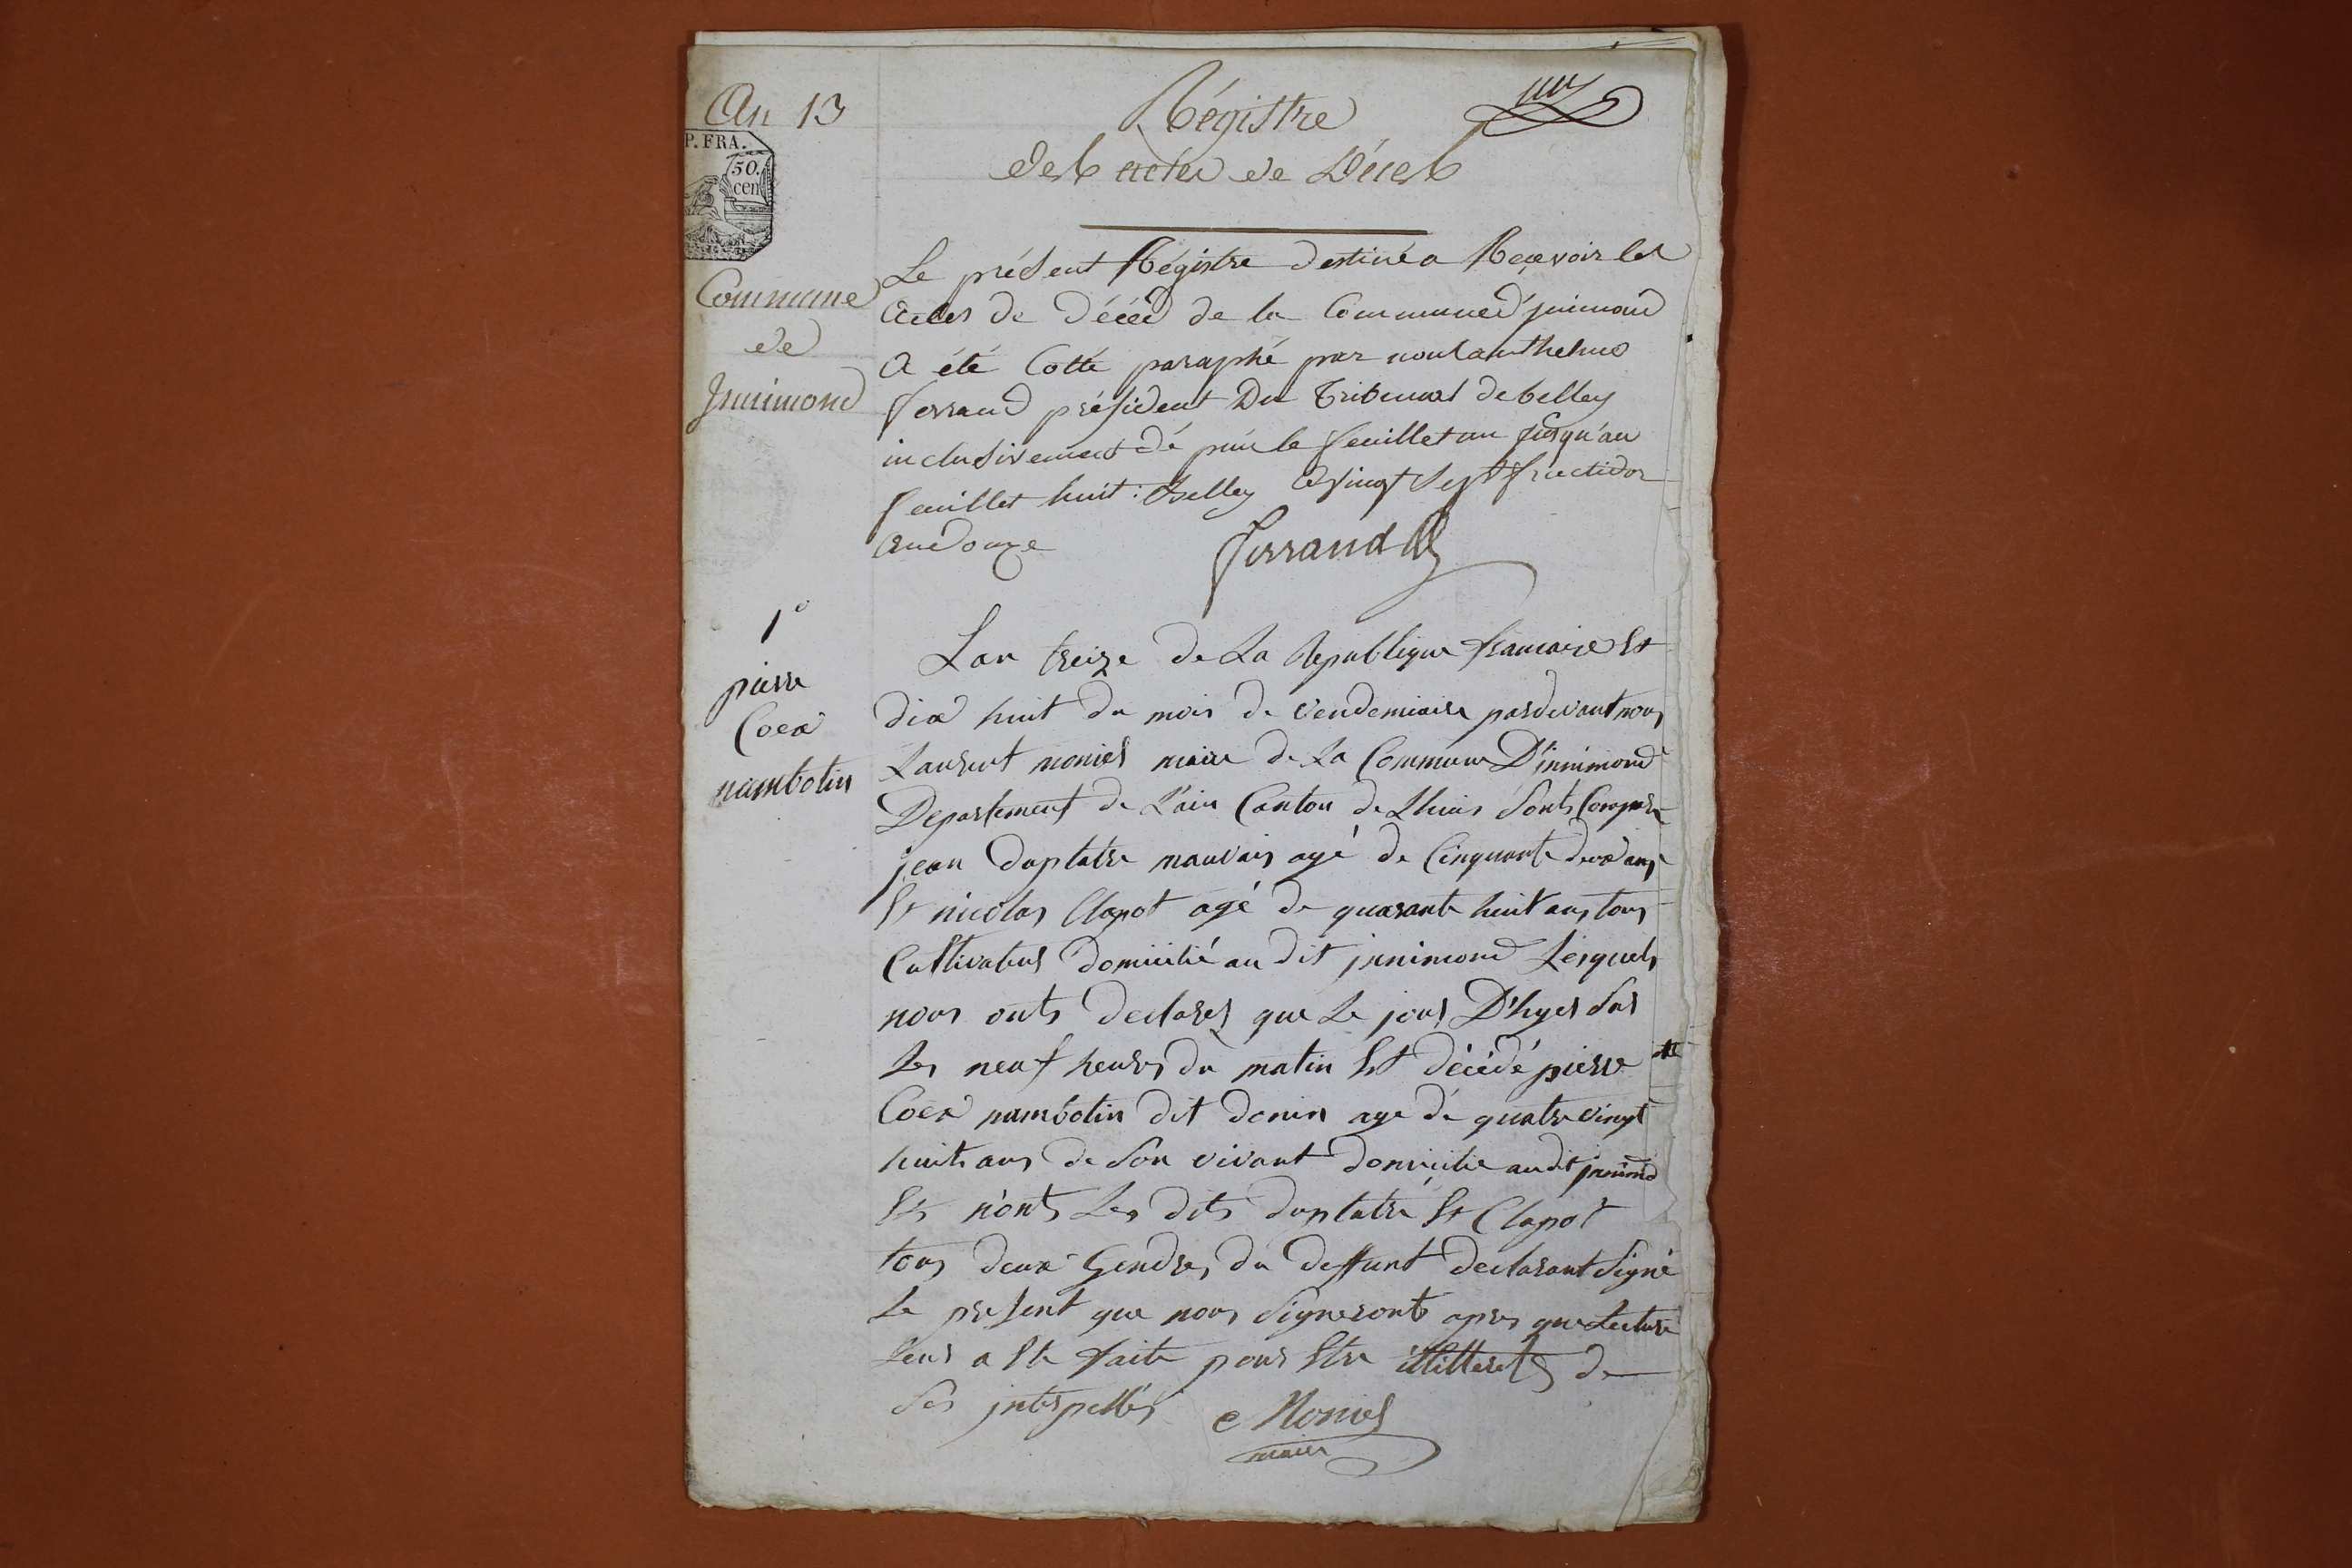 An 13
P. FRA.
50.
cen
Commune
de
Jnnimond
Régistre
des actes de Décès
un
Le présent Régistre destiné a Recevoir les
actes de décéd de la Commune d'jnimond
a été Cotté paraphé par nous anthelme
ferrand président Du Tribunal de belley
inclusivement dé puis le feuillet un jusqu'au
feuillet huit : Belley le vingt sept fructidor
an douze
ferrand
1°
pierre
Coex
nambotin
Lan treize de La Republique francaise Et
dix huit du mois de vendemiaire pardevant nous
Laurent monier maire de La Commune D'innimond
Departement de L'ain Canton de Lhuis sonts Comparu
jean duplatre mauvais agé de Cinquante deux ans
Et nicolas Clapot agé de quarante huit ans tous
Cultivateur domicilié au dit jnnimond Lesquels
nous onts declarer que Le jour D'hyer sur
Les neuf heures du matin Est décédé pierre
Coex nambotin dit donin age dé quatre vingt
huits ans de son vivant domicilie audit jnnimd
Et n'onts Les dits duplatre Et Clapot
tous deux Gendres du deffunt declarant signé
Le present que nous signeront apres que Lecture
Leur a Ete faite pour Etre illitterets de
Ses jnterpellés
Monier
maire